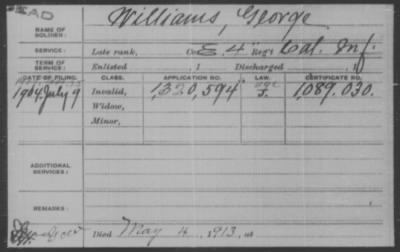 DEAD
NAME OF SOLDIER: Williams, George
SERVICE: Late rank, Co. E 4" Reg't Cal. Inf.
TERM OF SERVICE: Enlisted , 1 Discharged , 1
DATE OF FILING. CLASS. APPLICATION NO. LAW. CERTIFICATE NO.
1904 July 9 Invalid, 1,320,594 1,089.030.
Widow,
Minor,
ADDITIONAL SERVICES:
REMARKS:
Died May 4, 1913, at